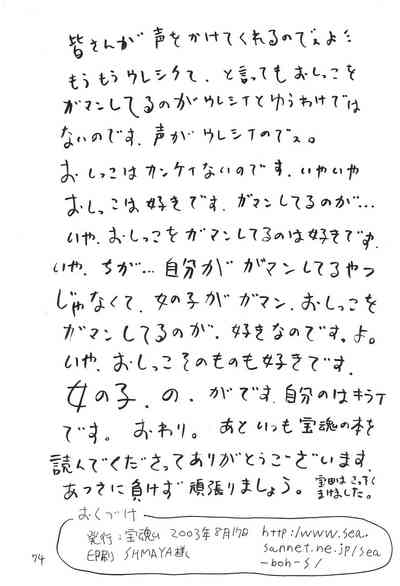 皆さんが声をかけてくれるのでぇよ!!
もうもうウレシクて、と言ってもおしっこを
ガマンしてるのがウレシイとゆうわけでは
ないのです、声がウレシイのでぇ。
おしっこはカンケイないのです、いやいや
おしっこは好きです、ガマンしてるのが…
いや、おしっこをガマンしてるのは好きです、
いや、ちが…自分がガマンしてるやつ
じゃなくて、女の子がガマン、おしっこを
ガマンしてるのが、好きなのです、よ。
いや、おしっこそのものも好きです、
女の子、の、がです、自分のはキライ
です。おわり。あといつも宝魂の本を
読んでくださってありがとうございます、
あつさに負けず頑張りましょう。宝田はさっそく
まけました。
おくづけ
発行：宝魂 2003年8月17日 http://www.sea.
印刷 SHMAYA様 sannet.ne.jp/sea
-boh-s/
74